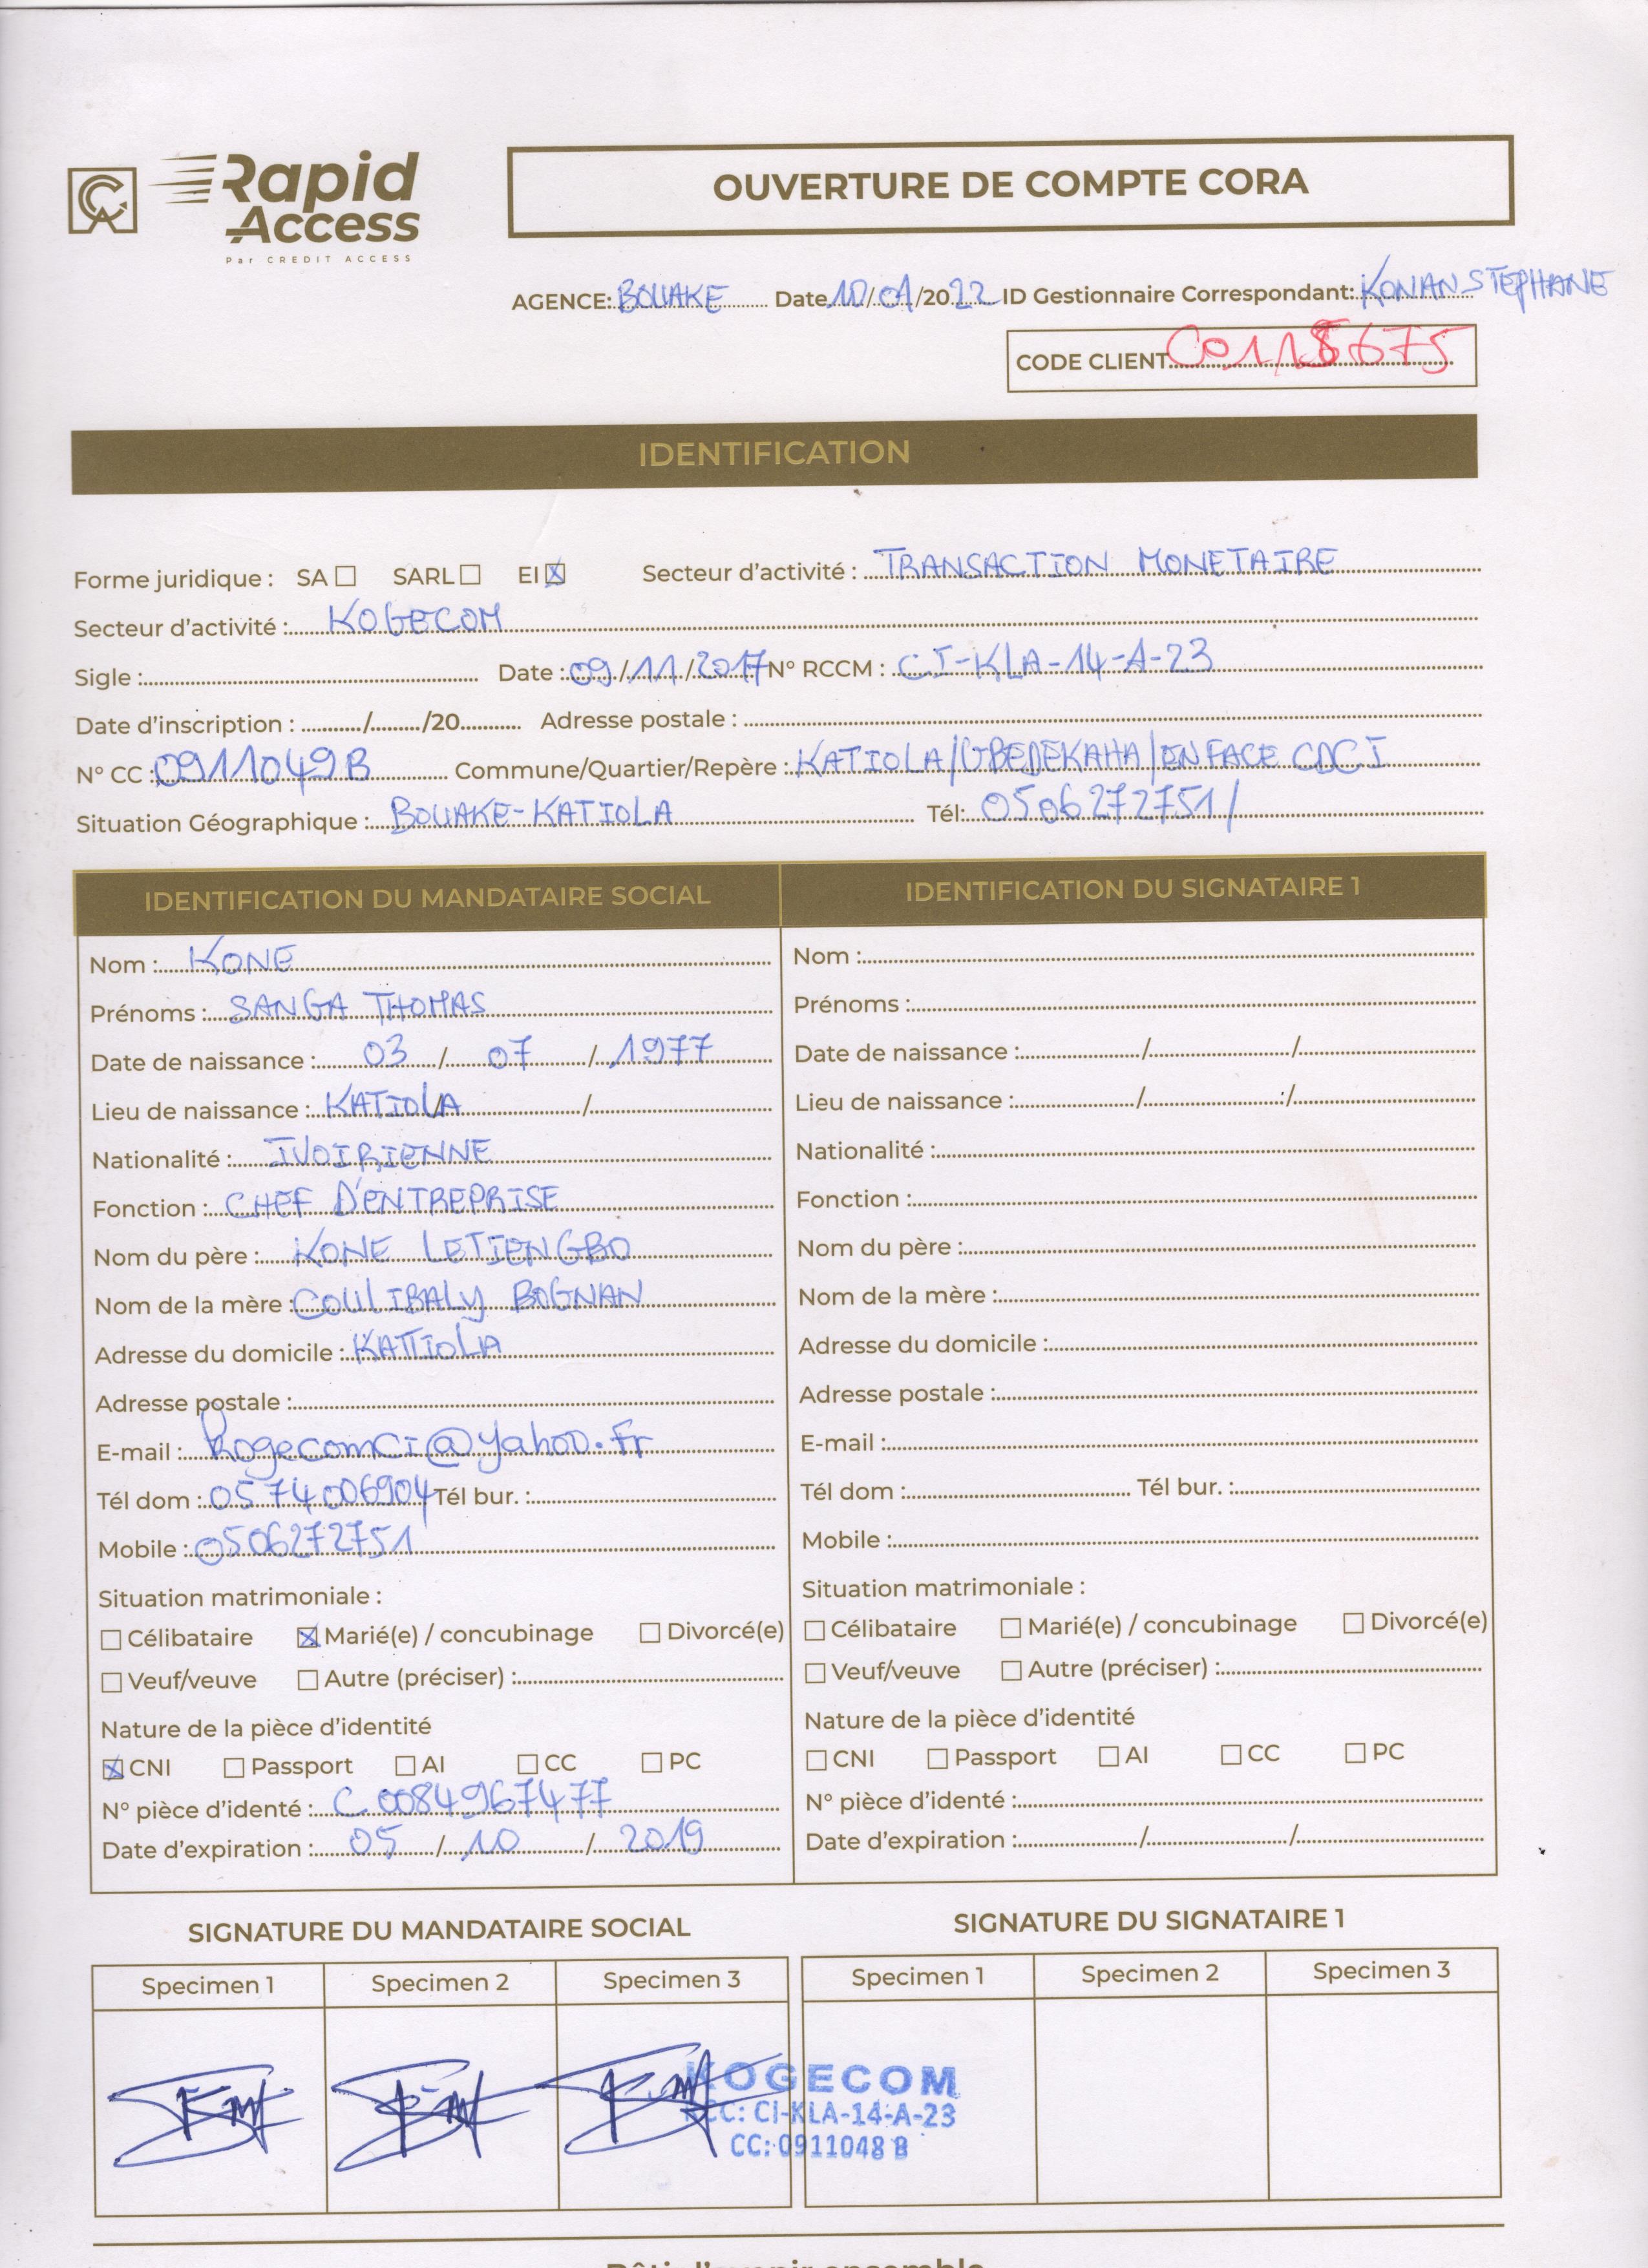 Rapid
Access
Par CREDIT ACCESS
OUVERTURE DE COMPTE CORA
AGENCE: BOUAKE Date 10/01/2022 ID Gestionnaire Correspondant: KONAN STEPHANE
CODE CLIENT C0118675
IDENTIFICATION
Forme juridique : SA ☐ SARL ☐ EI ☒ Secteur d'activité : TRANSACTION MONETAIRE
Secteur d'activité : KOGECOM
Sigle : Date : 09/11/2017 N° RCCM : CI-KLA-14-A-23
Date d'inscription : ....../....../20...... Adresse postale :
N° CC : 0911049B Commune/Quartier/Repère : KATIOLA/GBEDEKAHA/EN FACE CDCI
Situation Géographique : BOUAKE-KATIOLA Tél: 0506272751/
IDENTIFICATION DU MANDATAIRE SOCIAL
Nom : KONE
Prénoms : SANGA THOMAS
Date de naissance : 03 / 07 / 1977
Lieu de naissance : KATIOLA / /
Nationalité : IVOIRIENNE
Fonction : CHEF D'ENTREPRISE
Nom du père : KONE LETIENGBO
Nom de la mère : COULIBALY BOGNAN
Adresse du domicile : KATIOLA
Adresse postale :
E-mail : kogecomci@yahoo.fr
Tél dom : 0574006904 Tél bur. :
Mobile : 0506272751
Situation matrimoniale :
☐ Célibataire ☒ Marié(e) / concubinage ☐ Divorcé(e)
☐ Veuf/veuve ☐ Autre (préciser) :
Nature de la pièce d'identité
☒ CNI ☐ Passport ☐ AI ☐ CC ☐ PC
N° pièce d'identé : C 0084967477
Date d'expiration : 05 / 10 / 2019
IDENTIFICATION DU SIGNATAIRE 1
Nom :
Prénoms :
Date de naissance : / /
Lieu de naissance : / /
Nationalité :
Fonction :
Nom du père :
Nom de la mère :
Adresse du domicile :
Adresse postale :
E-mail :
Tél dom : Tél bur. :
Mobile :
Situation matrimoniale :
☐ Célibataire ☐ Marié(e) / concubinage ☐ Divorcé(e)
☐ Veuf/veuve ☐ Autre (préciser) :
Nature de la pièce d'identité
☐ CNI ☐ Passport ☐ AI ☐ CC ☐ PC
N° pièce d'identé :
Date d'expiration : / /
SIGNATURE DU MANDATAIRE SOCIAL
Specimen 1 Specimen 2 Specimen 3
SIGNATURE DU SIGNATAIRE 1
Specimen 1 Specimen 2 Specimen 3
KOGECOM
RCC: CI-KLA-14-A-23
CC: 0911048 B